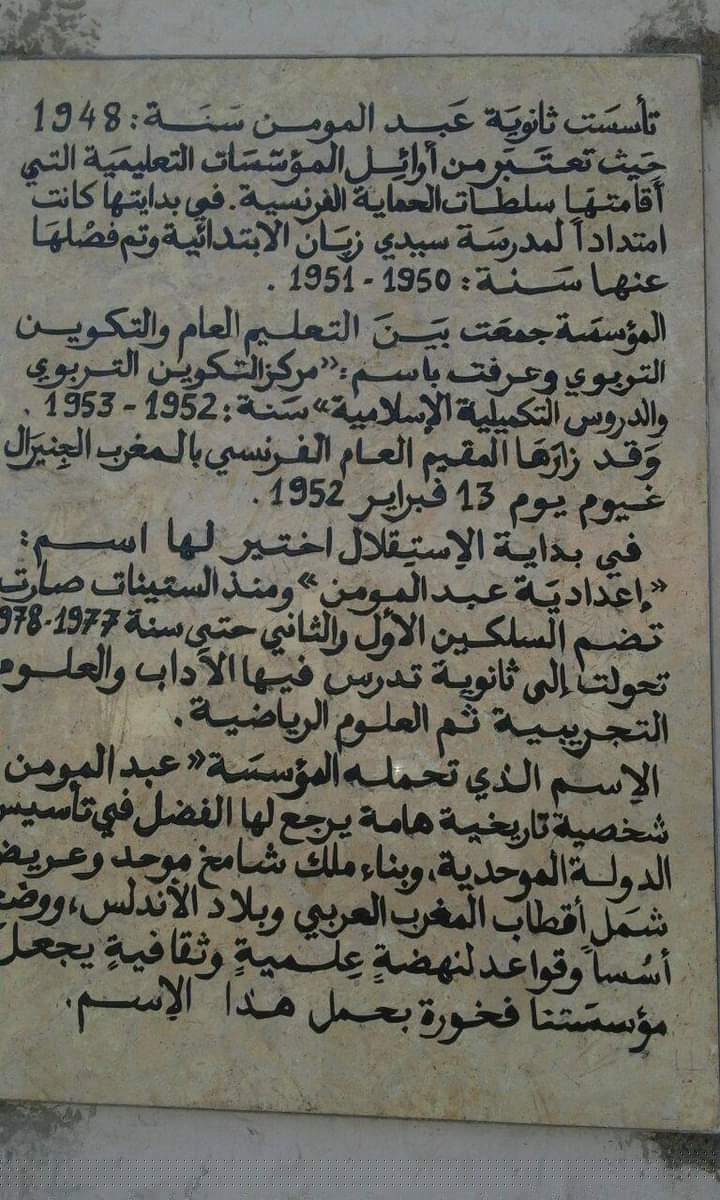 تأسسَت ثانويَة عَبـد المومـن سَنَـة : 1948
حَيث تعتَـبَر من أوائِـل المـؤسّسَات التعليمَية التي
أقامتهَـا سلطـات الحماية الفرنسيـة. في بدايتها كانت
امتداداً لمدرسَـة سيدي زيَـان الابتـدائيـة وتم فصْلهَـا
عنهـا سَـنـة : 1950 - 1951 .
المؤسسَـة جمعَت بيَـنَ التعلـيم العام والتكـويـن
التربـوي وعـرفت باسـم : «مركز التكوين التربوي
والدروس التكميلية الإسلامية» سَنة : 1952 - 1953 .
وَقـد زارَهَـا المقيـم العـام الفـرنسـي بالـمغرب الجِنيرَال
غـيوم يـوم 13 فبرايـر 1952 .
في بدايـة الإستِقـلال اختـيـر لـهـا اسـم :
«إعداديَـة عبـد المـومن» ومنـذ الستينات صارت
تـضـم السلكـين الأول والثاني حتـى سنة 1977-1978
تحولت إلى ثانويـة تدرس فيـهـا الآداب والعلـوم
التجريبيـة ثـم العلـوم الرياضيـة .
الإسـم الـذي تحملـه المؤسسَـة « عبـد المومن
شخصيـة تاريخيـة هامـة يـرجع لها الفضل في تأسيس
الـدولـة الموحدية، وبناء ملك شـامخ موحد وعـريض
شمَـل أقطاب المغرب العربي وبـلاد الأندلس، ووضع
أسُسـاً وقواعـد لنهضـةٍ عِلـميـةٍ وثقـافيـةٍ يجعـل
مؤسسَتنـا فخـورة بحمـل هـذا الإسـم.